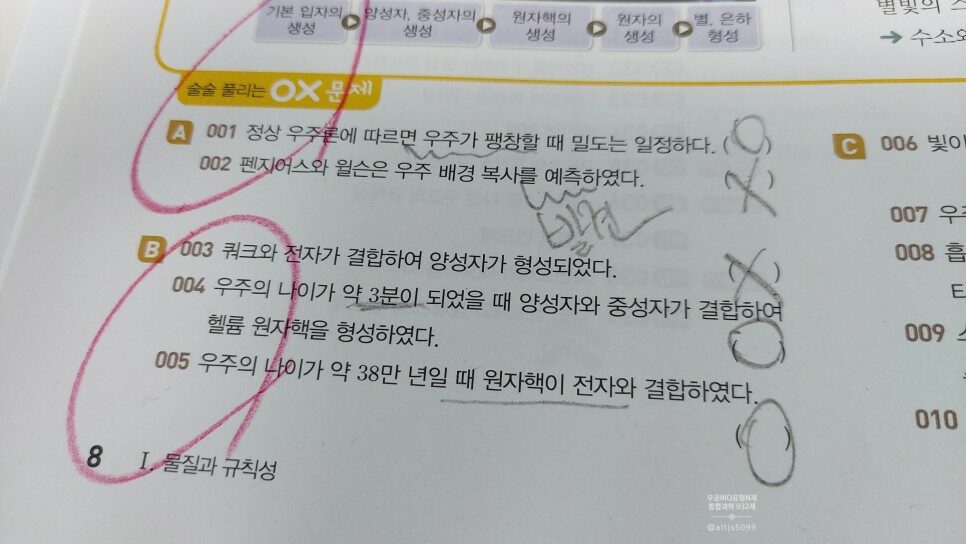 기본 입자의 생성
양성자, 중성자의 생성
원자핵의 생성
원자의 생성
별, 은하 형성
별빛의 스
→ 수소와
술술 풀리는 OX 문제
A 001 정상 우주론에 따르면 우주가 팽창할 때 밀도는 일정하다. (O)
002 펜지어스와 윌슨은 우주 배경 복사를 예측하였다. (X)
발견
B 003 쿼크와 전자가 결합하여 양성자가 형성되었다. (X)
004 우주의 나이가 약 3분이 되었을 때 양성자와 중성자가 결합하여
헬륨 원자핵을 형성하였다. (O)
005 우주의 나이가 약 38만 년일 때 원자핵이 전자와 결합하였다.
(O)
8 Ⅰ. 물질과 규칙성
C 006 빛이
007 우
008 흡
009
010
우공비Q유형N제
통합과학 932제
@altjs5099